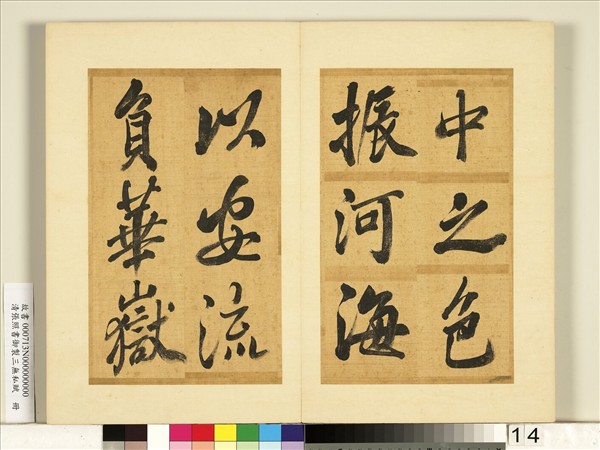 中之色
振河海
以安流
負華嶽
故書 000713N000000000
清張照書御製三無私賦 冊
14